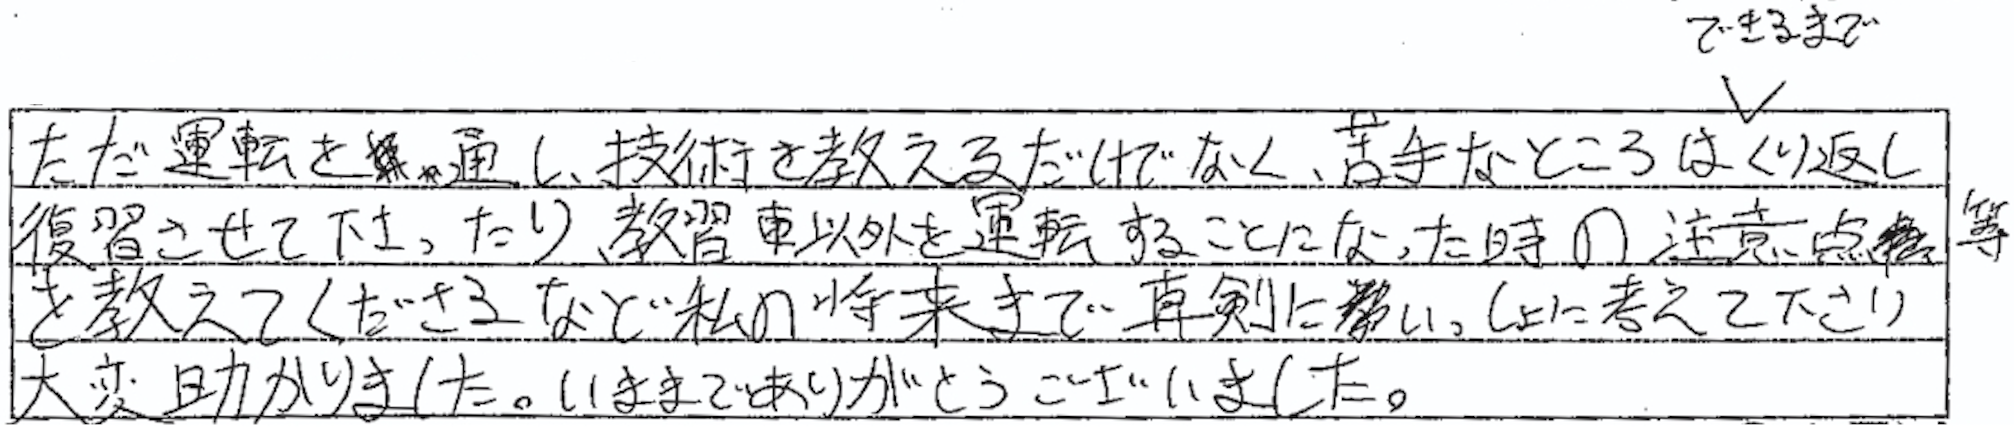 できるまで
ただ運転を通し、技術を教えるだけでなく、苦手なところはくり返し
復習させて下さったり、教習車以外を運転することになった時の注意点等
を教えてくださるなど私の将来まで真剣にいっしょに考えて下さり
大変助かりました。いままでありがとうございました。